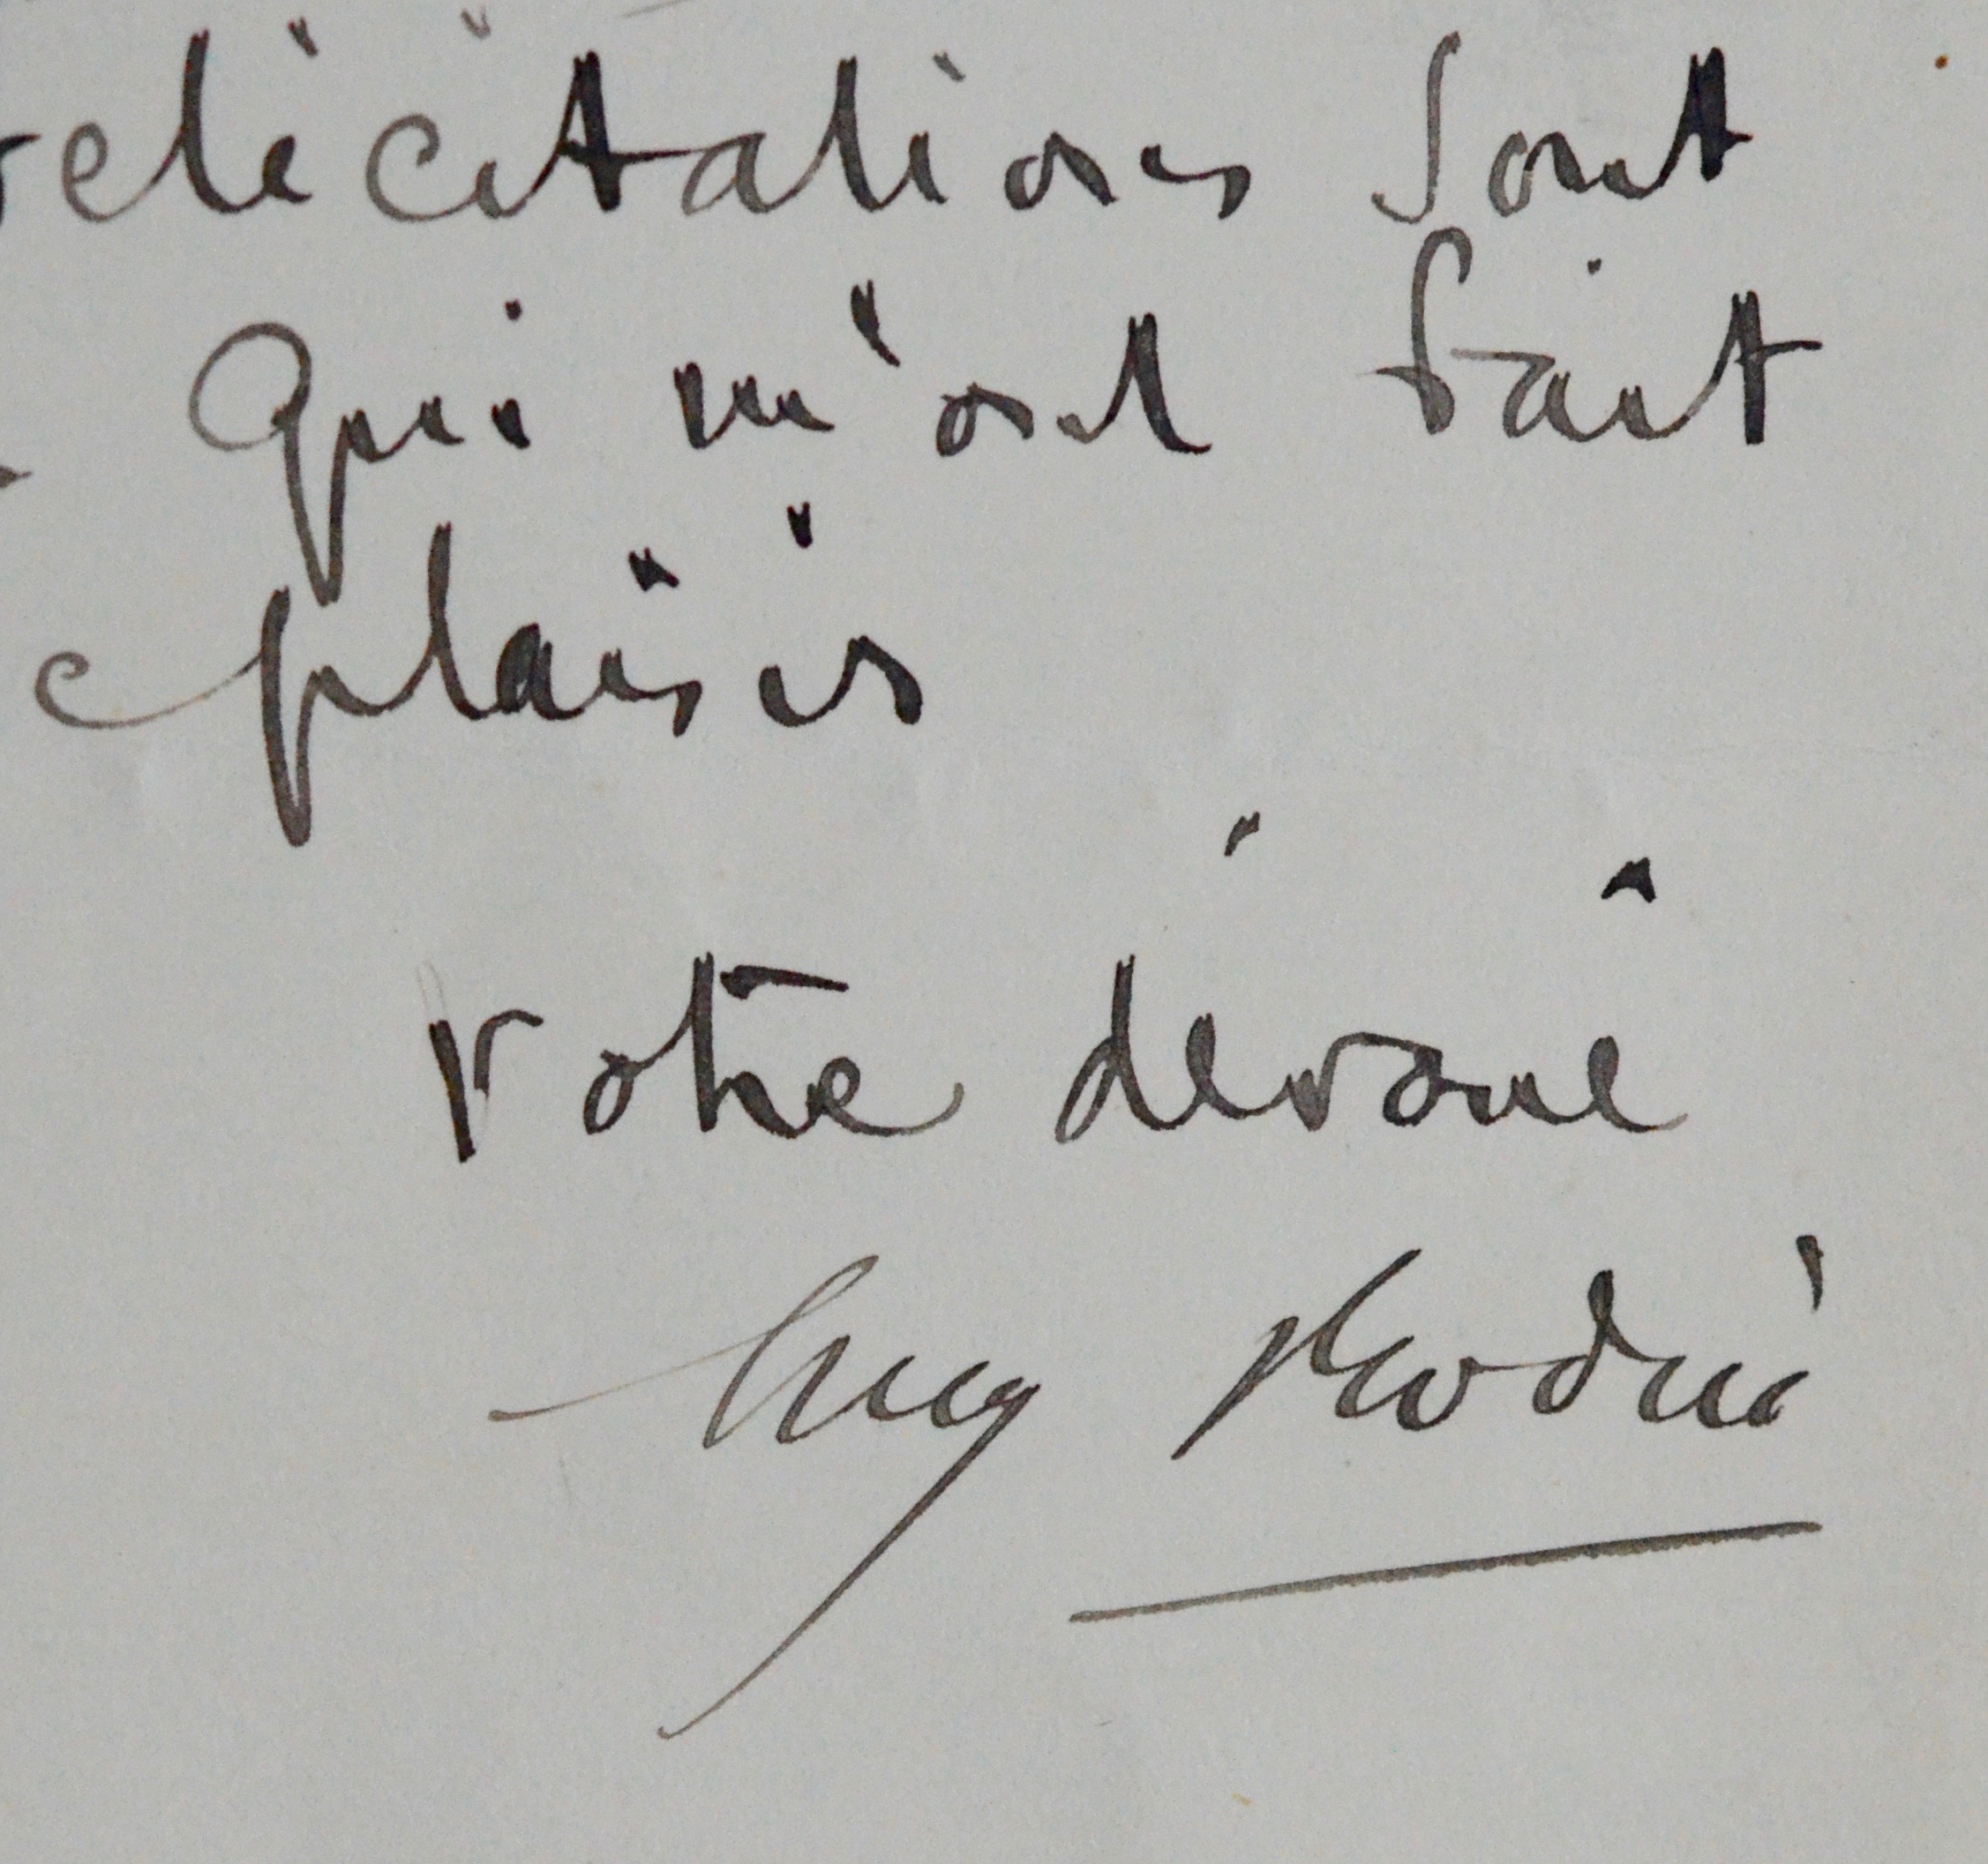 félicitations sont
qui m'ont fait
plaisir
Votre dévoué
Aug Rodin